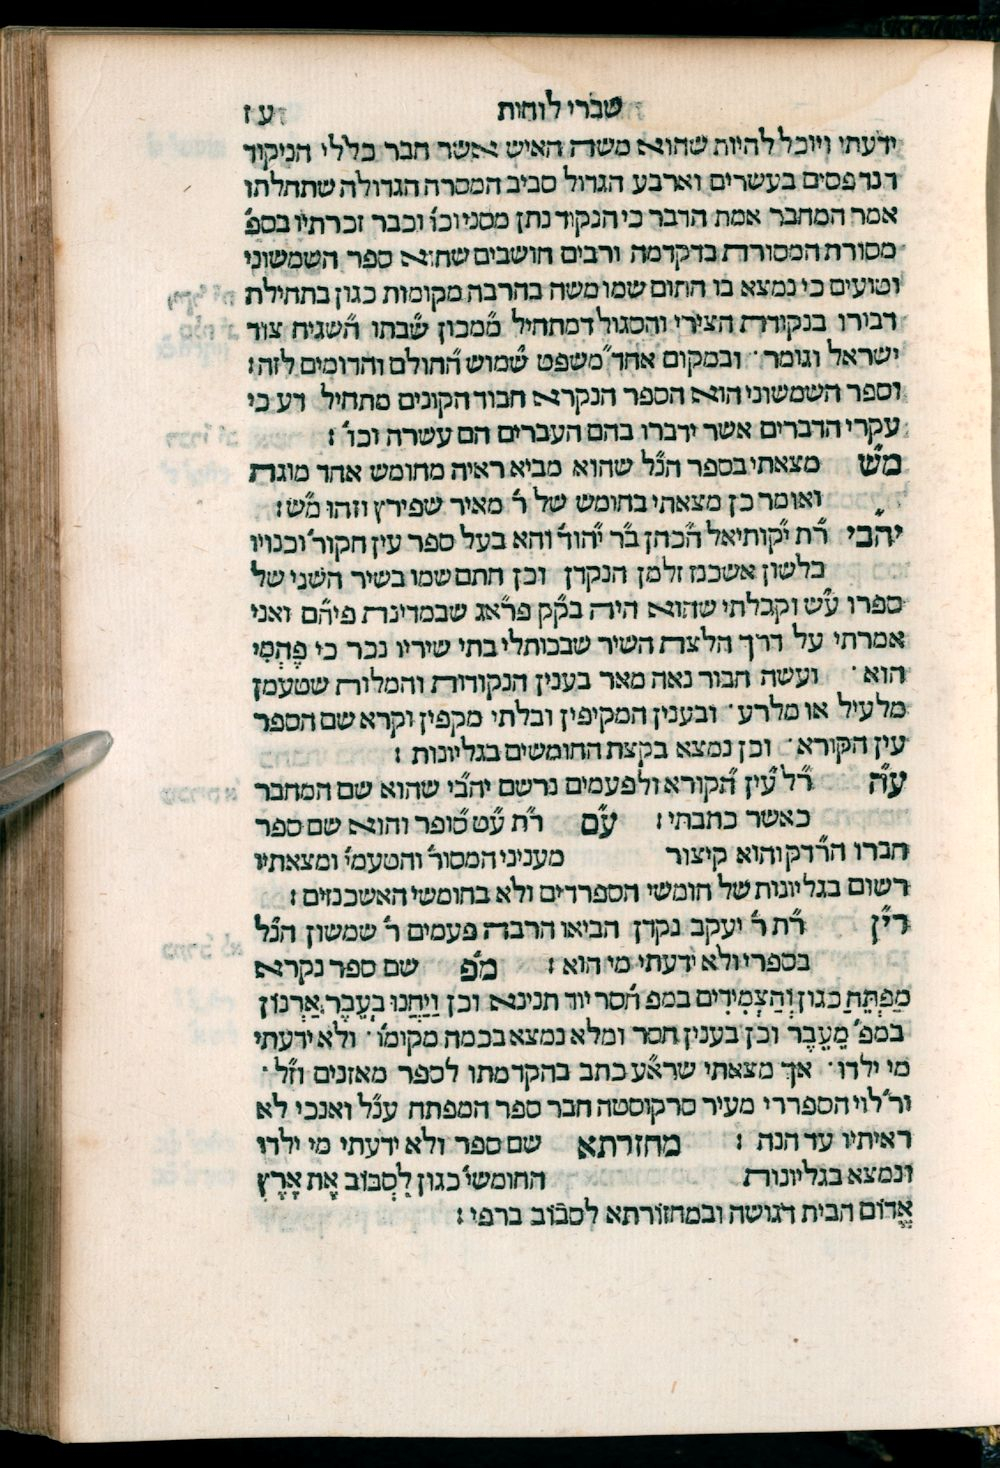 שברי לוחות עז
ידעתי ויוכל להיות שהוא משה האיש אשר חבר כללי הניקוד
הנדפסים בעשרים וארבע הגדול סביב המסרה הגדולה שתחלתו
אמר המחבר אמת הדבר כי הנקוד נתן מסני וכו׳ וכבר זכרתיו בספ׳
מסורת המסורת בהקדמה ורבים חושבים שהוא ספר השמשוני
וטועים כי נמצא בו חתום שמו משה בהרבה מקומות כגון בתחילת
דבורו בנקודת הצירי והסגול דמתחיל מ״מכון ש״בתו ה״שגיח צור
ישראל וגומר · ובמקום אחד מ״שפט ש״מוש ה״חולם והדומים לזה :
וספר השמשוני הוא הספר הנקרא חבור הקונים מתחיל דע כי
עקרי הדברים אשר ידברו בהם העברים הם עשרה וכו׳ :
מ״ש מצאתי בספר הנ״ל שהוא מביא ראיה מחומש אחד מוגה
ואומר כן מצאתי בחומש של ר׳ מאיר שפירץ וזהו מ״ש :
יהב״י ר״ת י״קותיאל ה״כהן ב״ר י״הודה והא בעל ספר עין הקור׳ וכנויו
בלשון אשכנז זלמן הנקדן וכן חתם שמו בשיר השני של
ספרו ע״ש וקבלתי שהוא היה בק״ק פר״אג שבמדינת פיה״ם ואני
אמרתי על דרך הלצת השיר שבכותלי בתי שיריו נכר כי פֶהְמִי
הוא · ועשה חבור נאה מאד בענין הנקודות והמלות שטעמן
מלעיל או מלרע · ובענין המקיפין ובלתי מקפין וקרא שם הספר
עין הקורא · וכן נמצא בקצת החומשים בגליונות :
ע״ה ר״ל ע״ין ה״קורא ולפעמים נרשם יהב״י שהוא שם המחבר
כאשר כתבתי : ע״ס ר״ת ע״ט ס״ופר והוא שם ספר
חברו הרד״ק והוא קיצור מעניני המסור׳ והטעמי׳ ומצאתיו
רשום בגליונות של חומשי הספרדים ולא בחומשי האשכנזים :
רי״ן ר״ת ר׳ יעקב נקדן הביאו הרבה פעמים ר׳ שמשון הנ״ל
בספרי ולא ידעתי מי הוא : מ״פ שם ספר נקרא
מַפְתֵּחַ כגון וְהַצְמִידִים במפ׳ חסר יוד תנינא וכן וַיַּחֲנוּ בְעֵבֶר אַרְנוֹן
במפ׳ מֵעֵבֶר וכן בענין חסר ומלא נמצא בכמה מקומו׳ · ולא ידעתי
מי ילדו · אך מצאתי שרא״ע כתב בהקדמתו לספר מאזנים וז״ל ·
ור׳ לוי הספרדי מעיר סרקוסטה חבר ספר המפתח עכ״ל ואנכי לא
ראיתיו עד הנה : מחזרתא שם ספר ולא ידעתי מי ילדו
ונמצא בגליונות החומשי׳ כגון לִסְבּוֹב אֶת אֶרֶץ
אֱדוֹם הבית דגושה ובמחזורתא לסבוב ברפי :